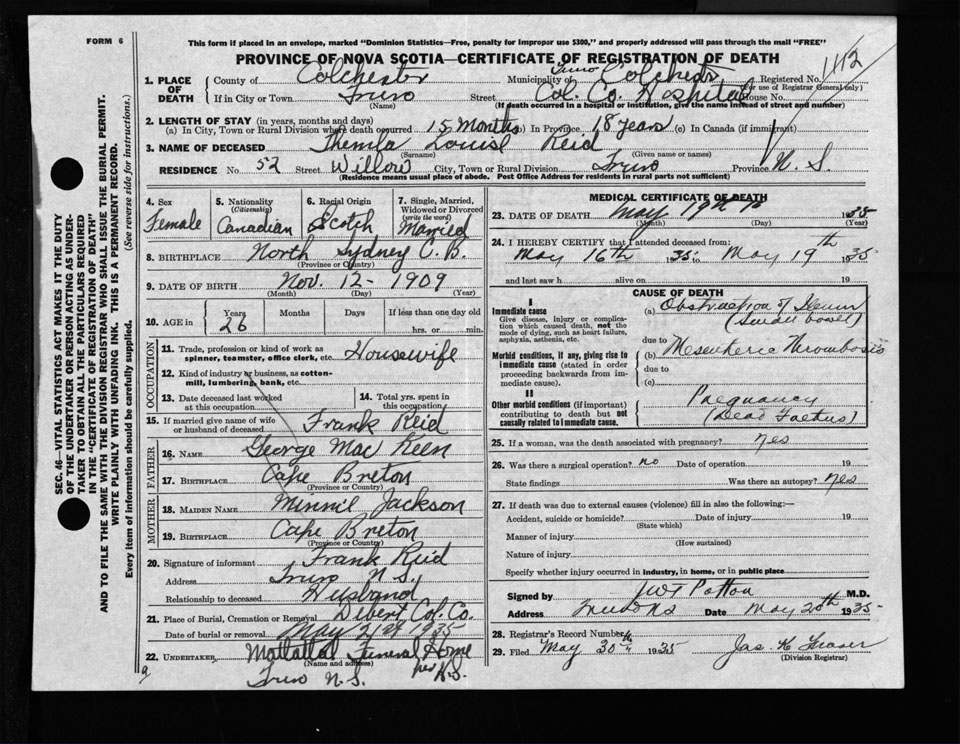 FORM 6
This form if placed in an envelope, marked "Dominion Statistics—Free, penalty for improper use $300," and properly addressed will pass through the mail "FREE"
PROVINCE OF NOVA SCOTIA—CERTIFICATE OF REGISTRATION OF DEATH
1. PLACE OF DEATH County of Colchester Municipality of Truro Colchester Registered No. 1112
(For use of Registrar General only)
If in City or Town Truro Street Col. Co. Hospital House No.
(Name) (If death occurred in a hospital or institution, give the name instead of street and number)
2. LENGTH OF STAY (in years, months and days)
(a) In City, Town or Rural Division where death occurred 15 months (b) In Province 18 years (c) In Canada (if immigrant)
3. NAME OF DECEASED Themla Louise Reid
(Surname) (Given name or names)
RESIDENCE No. 52 Street Willow City, Town or Rural Division Truro Province N. S.
(Residence means usual place of abode. Post Office Address for residents in rural parts not sufficient)
4. Sex Female
5. Nationality (Citizenship) Canadian
6. Racial Origin Scotch
7. Single, Married, Widowed or Divorced (write the word) Married
8. BIRTHPLACE North Sydney C. B.
(Province or Country)
9. DATE OF BIRTH Nov. 12 - 1909
(Month) (Day) (Year)
10. AGE in Years 26 Months Days If less than one day old
hrs. or min.
OCCUPATION
11. Trade, profession or kind of work as spinner, teamster, office clerk, etc. Housewife
12. Kind of industry or business, as cotton-mill, lumbering, bank, etc.
13. Date deceased last worked at this occupation
14. Total yrs. spent in this occupation
15. If married give name of wife or husband of deceased Frank Reid
FATHER
16. NAME George Mac Keen
17. BIRTHPLACE Cape Breton
(Province or Country)
MOTHER
18. MAIDEN NAME Minnie Jackson
19. BIRTHPLACE Cape Breton
(Province or Country)
20. Signature of informant Frank Reid
Address Truro N.S.
Relationship to deceased Husband
21. Place of Burial, Cremation or Removal Debert Col. Co.
Date of burial or removal May 21st 1935
22. UNDERTAKER Mattattal Funeral Home
(Name and address)
Truro N.S. per
MEDICAL CERTIFICATE OF DEATH
23. DATE OF DEATH May 19th 1935
(Month) (Day) (Year)
24. I HEREBY CERTIFY that I attended deceased from:
May 16th 1935 to May 19th 1935
and last saw h alive on 19
CAUSE OF DEATH
I
Immediate cause
Give disease, injury or complication which caused death, not the mode of dying, such as heart failure, asphyxia, asthenia, etc.
(a) Obstruction of Ileum
(Small bowel)
due to
Morbid conditions, if any, giving rise to immediate cause (stated in order proceeding backwards from immediate cause).
(b) Mesenteric Thrombosis
due to
(c)
II
Other morbid conditions (if important) contributing to death but not causally related to immediate cause.
Pregnancy
(Dead Foetus)
25. If a woman, was the death associated with pregnancy? Yes
26. Was there a surgical operation? no Date of operation 19
State findings Was there an autopsy? Yes
27. If death was due to external causes (violence) fill in also the following:—
Accident, suicide or homicide? Date of injury 19
(State which)
Manner of injury
(How sustained)
Nature of injury
Specify whether injury occurred in industry, in home, or in public place
Signed by Patton M.D.
Address Truro NS Date May 20th 1935
28. Registrar's Record Number
29. Filed May 30th 1935 Jas. H Fraser
(Division Registrar)
SEC. 46—VITAL STATISTICS ACT MAKES IT THE DUTY
OF THE UNDERTAKER OR PERSON ACTING AS UNDER-
TAKER TO OBTAIN ALL THE PARTICULARS REQUIRED
IN THE "CERTIFICATE OF REGISTRATION OF DEATH"
AND TO FILE THE SAME WITH THE DIVISION REGISTRAR WHO SHALL ISSUE THE BURIAL PERMIT.
WRITE PLAINLY WITH UNFADING INK. THIS IS A PERMANENT RECORD.
Every item of information should be carefully supplied. (See reverse side for instructions.)